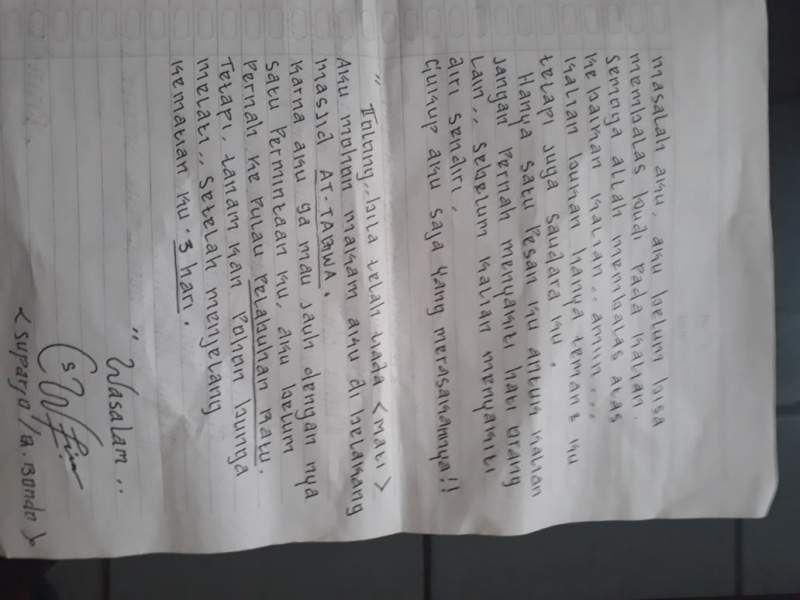 masalah aku, aku belum bisa
membalas budi pada kalian.
semoga allah membalas atas
kebaikan kalian.. amiin...
kalian bukan hanya teman² ku
tetapi juga saudara ku.
Hanya satu pesan ku antuk kalian
jangan pernah menyakiti hati orang
lain,, sebelum kalian menyakiti
diri sendiri,
Cukup aku saja yang merasakannya!!
" Tolong,, bila telah tiada <Mati>
Aku mohon makam aku di belakang
masjid AT-TAQWA.
karna aku ga mau jauh dengan nya
satu permintaan ku, aku belum
pernah ke pulau pelabuhan Ratu.
Tetapi, tanam kan pohon bunga
melati,, setelah menjelang
kematian ku. 3 hari.
" Wasalam..
<suparjo/A.Bondo>